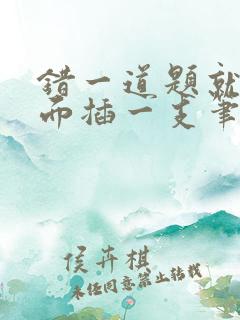 错一道题就
而插一支笔
侯卉棋
未经同意禁止转载